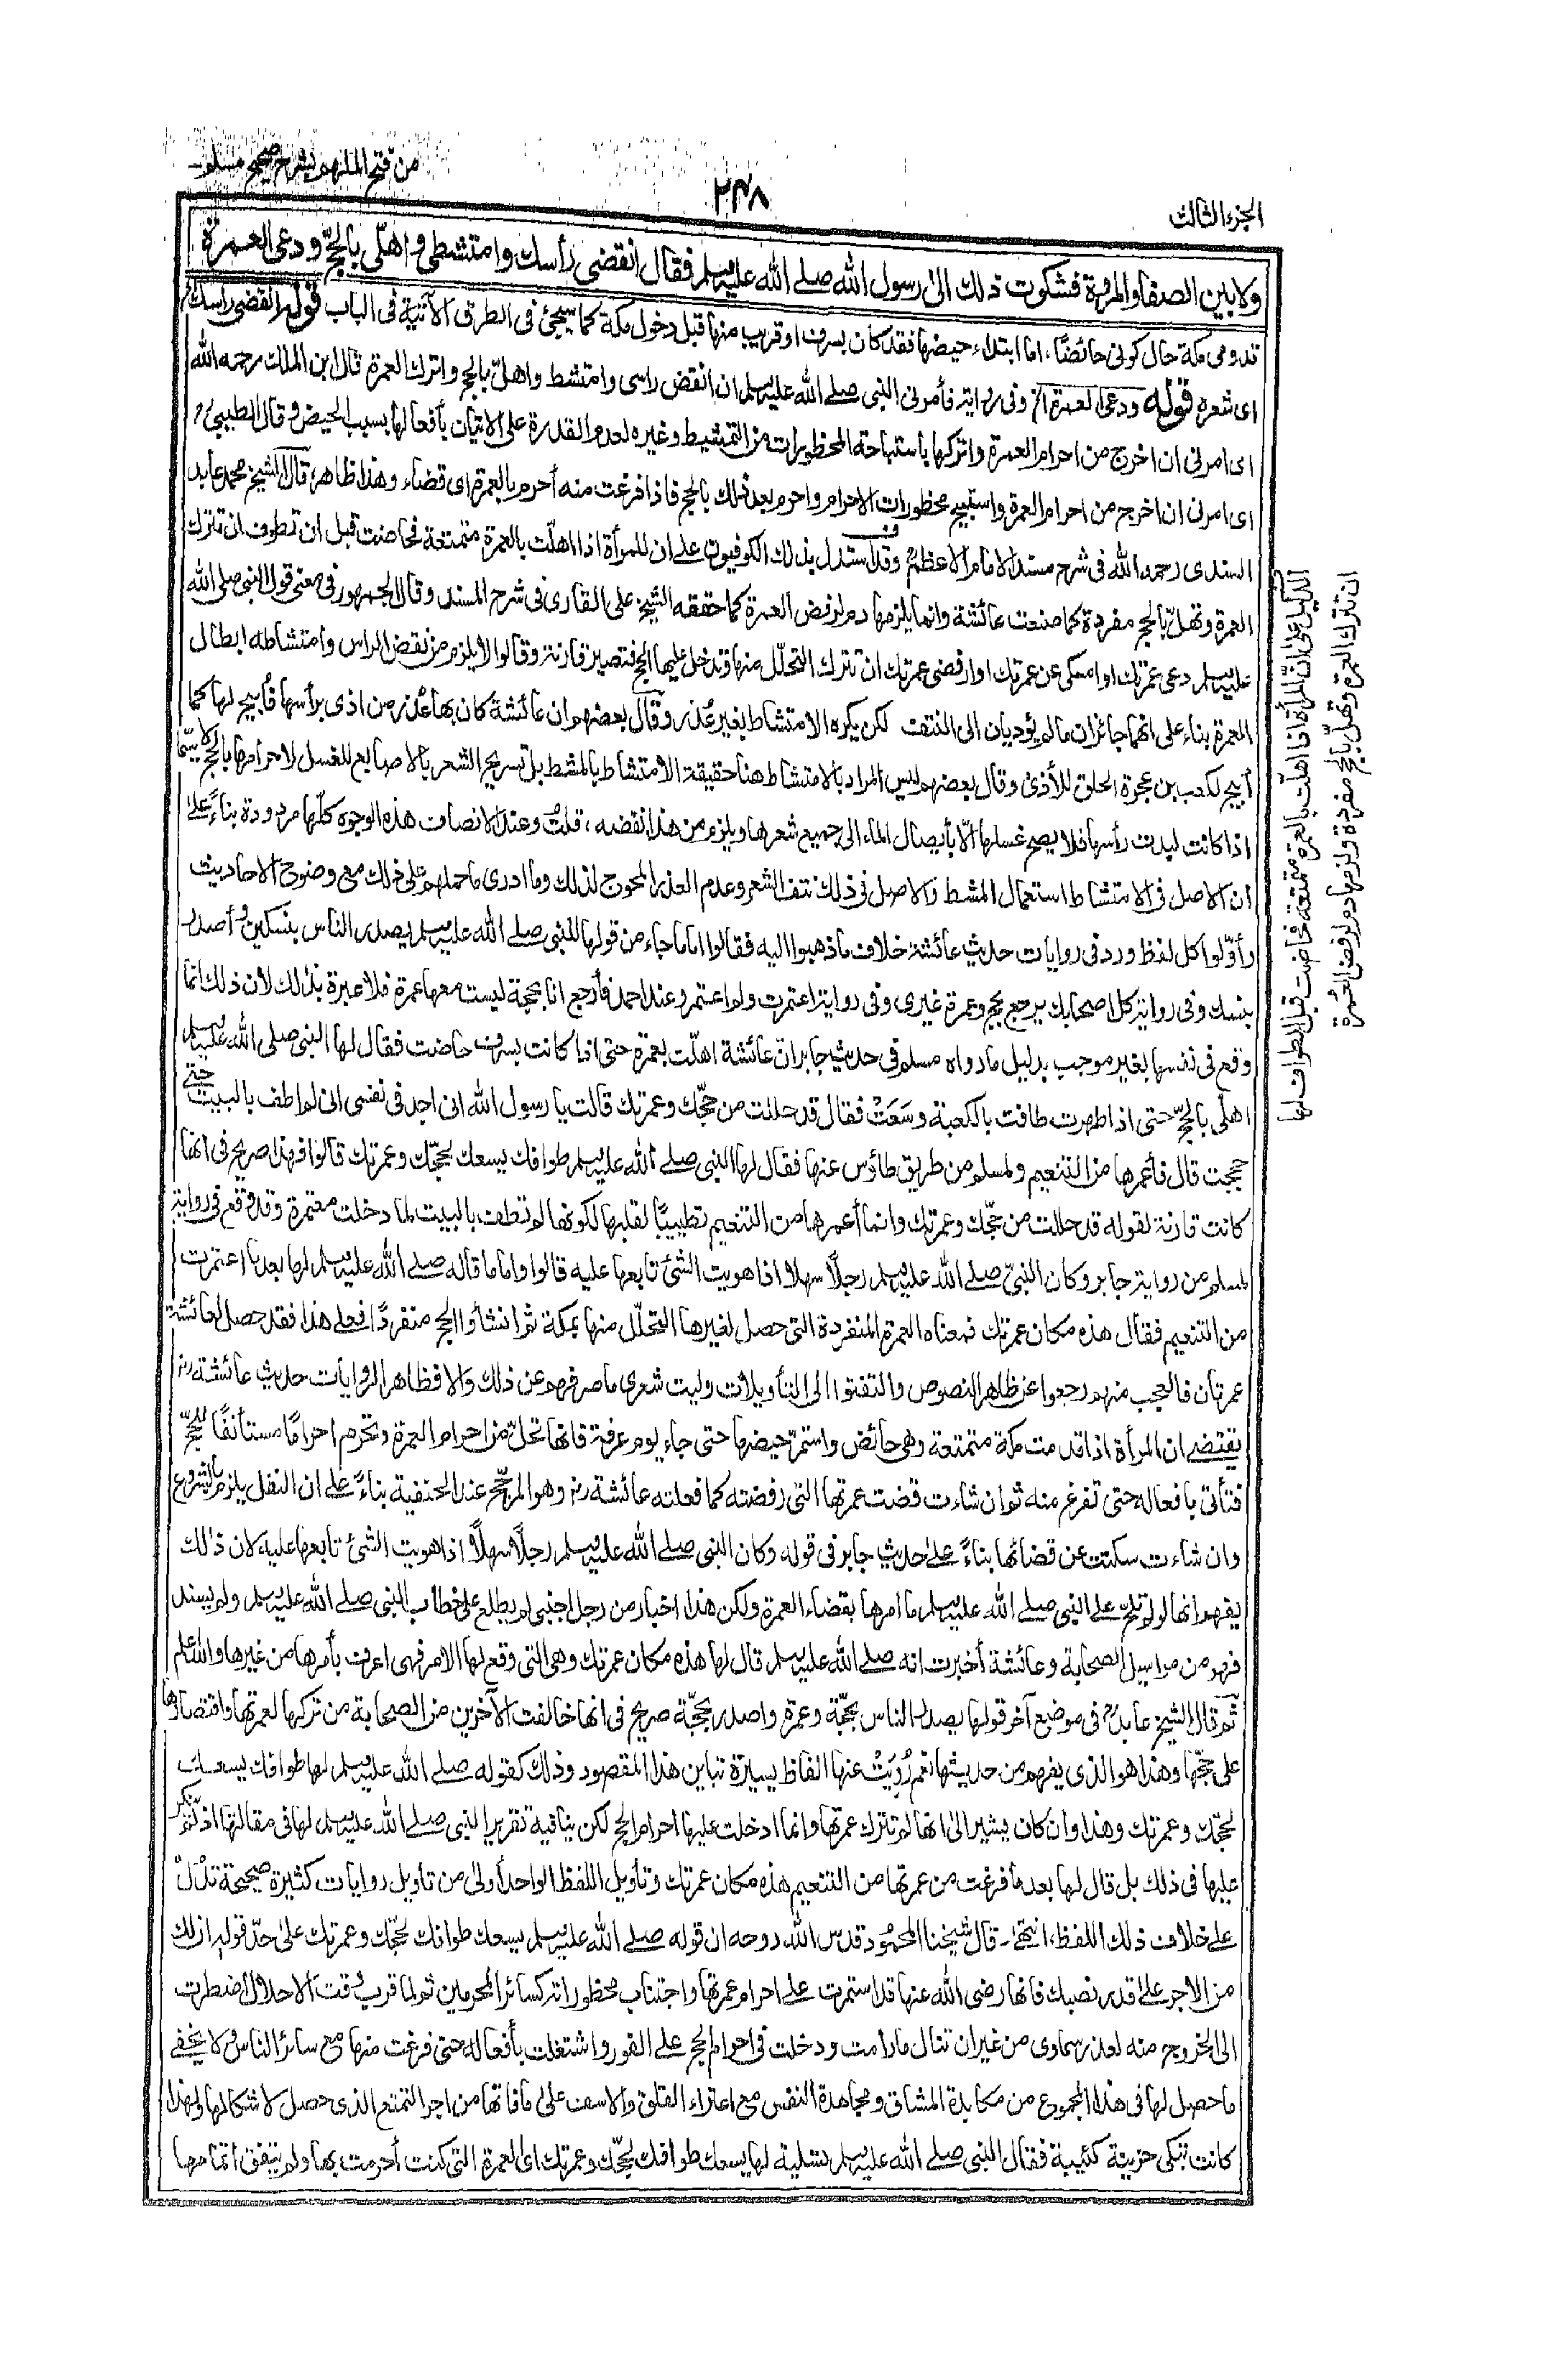 الجزء الثالث
٢٤٨
من فتح الملهم بشرح صحيح مسلم
ولا بين الصفا والمروة فشكوت ذلك الى رسول الله صلے الله عليه وسلم فقال انقضى رأسك وامتشطى واهلّى بالحجّ ودعى العمرة
قدومى مكة حال كونى حائضًا، اما ابتداء حيضها فقد كان بسرف او قريب منها قبل دخول مكة كما سيجئ فى الطرق الآتية فى الباب قوله انقضى راسك الخ
اى شعره قوله ودعى العمرة الخ وفى رواية فأمرنى النبى صلے الله عليه وسلم ان انقض راسى وامتشط واهلّ بالحج واترك العمرة قال ابن الملك رحمه الله
اى امرنى ان اخرج من احرام العمرة واتركها باستباحة المحظورات من التمشيط وغيره لعدم القدرة على الاتيان بأفعالها بسبب الحيض وقال الطيبى
اى امرنى ان اخرج من احرام العمرة واستبيح محظورات الاحرام واحرم بعد ذلك بالحج فاذا فرغت منه أحرم بالعمرة اى قضاء وهذا ظاهر، قال الشيخ محمد عابد
السندى رحمه الله فى شرح مسند الامام الاعظم وقد استدل بذلك الكوفيون على ان للمرأة اذا اهلّت بالعمرة متمتعة فحاضت قبل ان تطوف ان تترك
العمرة وتهلّ بالحج مفردة كما صنعت عائشة وانما يلزمها دم لرفض العمرة كما حققه الشيخ على القارى فى شرح المسند وقال الجمهور فى معنى قول النبى صلى الله
عليه وسلم دعى عمرتك او امسكى عن عمرتك او ارفضى عمرتك ان تترك التحلّل منها وتدخل عليها الحج فتصير قارنة وقالوا لا يلزم من نقض الراس وامتشاطه ابطال
العمرة بناء على انهما جائزان ما لم يؤديان الى النتف لكن يكره الامتشاط بغير عُذر وقال بعضهم ان عائشة كان بها عُذر من اذى برأسها فأبيح لها كما
أبيح لكعب بن عجرة الحلق للأذى وقال بعضهم ليس المراد بالامتشاط هنا حقيقة الامتشاط بالمشط بل تسريح الشعر بالاصابع للغسل لاحرامها بالحج لا سيّما
اذا كانت لبدت رأسها فلا يصح غسلها الّا بأيصال الماء الى جميع شعرها ويلزم من هذا نقضه، قلتُ وعند الانصاف هذه الوجوه كلّها مردودة بناءً على
ان الاصل فى الامتشاط استعمال المشط والاصل فى ذلك نتف الشعر وعدم العذر المحوج لذلك وما ادرى ما حملهم على ذلك مع وضوح الاحاديث
وأوّلوا كل لفظ ورد فى روايات حديث عائشة خلاف ما ذهبوا اليه فقالوا اما ما جاء من قولها للنبى صلے الله عليه وسلم يصدر الناس بنسكين وأصدر
بنسك وفى رواية كل اصحابك يرجع بحج وعمرة غيرى وفى رواية اعتمرت ولم اعتمر وعند احمد فأرجع انا بحجة ليست معها عمرة فلا عبرة بذلك لأن ذلك انما
وقع فى نفسها بغير موجب بدليل ما رواه مسلم فى حديث جابر ان عائشة اهلّت بعمرة حتى اذا كانت بسرف حاضت فقال لها النبى صلى الله عليه وسلم
اهلّى بالحجّ حتى اذا طهرت طافت بالكعبة وسَعَتْ فقال قد حللت من حجّك وعمرتك قالت يا رسول الله انى اجد فى نفسى انى لم اطف بالبيت حتى
حججت قال فأعمرها من التنعيم ولمسلم من طريق طاؤس عنها فقال لها النبى صلے الله عليه وسلم طوافك يسعك لحجّك وعمرتك قالوا فهذا صريح فى انها
كانت قارنة لقوله قد حللت من حجّك وعمرتك وانما أعمرها من التنعيم تطييبًا لقلبها لكونها لم تطف بالبيت لما دخلت معتمرة وقد وقع فى رواية
لمسلم من رواية جابر وكان النبىّ صلے الله عليه وسلم رجلًا سهلا اذا هويت الشئ تابعها عليه قالوا واما ما قاله صلے الله عليه وسلم لها بعد ما اعتمرت
من التنعيم فقال هذه مكان عمرتك فمعناه العمرة المنفردة التى حصل لغيرها التحلّل منها بمكة ثم انشأوا الحج منفردًا فعلى هذا فقد حصل لعائشة
عمرتان فالعجب منهم رجعوا عن ظاهر النصوص والتفتوا الى التأويلات وليت شعرى ما صرفهم عن ذلك والا فظاهر الروايات حديث عائشة رض
يقتضے ان المرأة اذا قدمت مكة متمتعة وهى حائض واستمرّ حيضها حتى جاء يوم عرفة فانها تحلّ من احرام العمرة وتحرم احرامًا مستأنفًا للحجّ
فتأتى بافعاله حتى تفرغ منه ثم ان شاءت قضت عمرتها التى رفضته كما فعلته عائشة رض وهو المرجّح عند الحنفية بناءً على ان النفل يلزم بالشروع
وان شاءت سكتت عن قضائها بناءً على حديث جابر فى قوله وكان النبى صلے الله عليه وسلم رجلًا سهلًا اذا هويت الشئ تابعها عليه، لان ذلك
يفهم انها لو لم تلحّ على النبى صلے الله عليه وسلم ما امرها بقضاء العمرة ولكن هذا اخبار من رجل اجنبى لم يطلع على خطاب النبى صلے الله عليه وسلم ولم يسند
فهو من مراسيل الصحابة وعائشة أخبرت انه صلے الله عليه وسلم قال لها هذه مكان عمرتك وهى التى وقع لها الامر فهى اعرف بأمرها من غيرها والله اعلم
ثم قال الشيخ عابد فى موضع آخر قولها يصدر الناس بحجّة وعمرة واصدر بحجّة صريح فى انها خالفت الآخرين من الصحابة من تركها لعمرتها واقتصارها
على حجّها وهذا هو الذى يفهم من حديثها نعم رُوِيَتْ عنها الفاظ يسيرة تباين هذا المقصود وذلك كقوله صلے الله عليه وسلم لها طوافك يسعك
لحجّك وعمرتك وهذا وان كان يشير الى انها لم تترك عمرتها وانما ادخلت عليها احرام الحج لكن ينافيه تقرير النبى صلے الله عليه وسلم لها فى مقالتها اذ لم ينكر
عليها فى ذلك بل قال لها بعد ما فرغت من عمرتها من التنعيم هذه مكان عمرتك وتأويل اللفظ الواحد أولى من تاويل روايات كثيرة صحيحة تدلّ
على خلاف ذلك اللفظ، انتهى۔ قال شيخنا المحمود قدس الله روحه ان قوله صلے الله عليه وسلم يسعك طوافك لحجّك وعمرتك على حدّ قوله ان لك
من الاجر على قدر نصبك فانها رضى الله عنها قد استمرت على احرام عمرتها واجتناب محظوراته كسائر المحرمين ثم لما قرب وقت الاحلال اضطرت
الى الخروج منه لعذر سماوى من غير ان تنال ما رامت ودخلت فى احرام الحج على الفور واشتغلت بأفعاله حتى فرغت منها مع سائر الناس ولا يخفى
ما حصل لها فى هذا المجموع من مكابدة المشاق ومجاهدة النفس مع اعتراء القلق والاسف على ما فاتها من اجر التمتع الذى حصل لاشكالها ولهذا
كانت تبكى حزينة كئيبة فقال النبى صلے الله عليه وسلم تسلية لها يسعك طوافك لحجّك وعمرتك اى العمرة التى كنت أحرمت بها ولم يتفق اتمامها
الدليل على انّ المرأة اذا اهلّت بالعمرة متمتعة فحاضت قبل الطواف لها
ان تترك العمرة وتهلّ بالحج مفردة ولزمها دم لرفض العُمرة